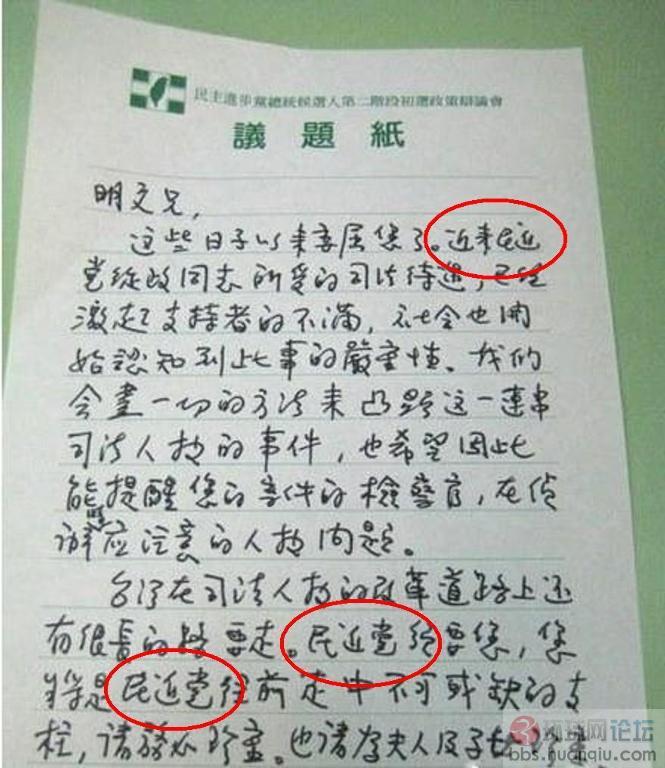 民主進步黨總統候選人第二階段初選政策辯論會
議題紙
明文兄,
这些日子以来委屈您了。近来民近
党從政同志所受的司法待遇,已经
激起支持者的不滿,社会也開
始認知到此事的嚴重性。我们
会盡一切的方法来凸顯这一連串
司法人权的事件,也希望因此
能提醒您的案件的檢察官,在偵
辦应注意的人权问题。
台湾在司法人权的改革道路上还
有很長的路要走。民近党 要您,您
將是民近党往前走中不可或缺的支
柱,請務必珍重。也請为夫人及子女
环球网论坛
bbs.huanqiu.com